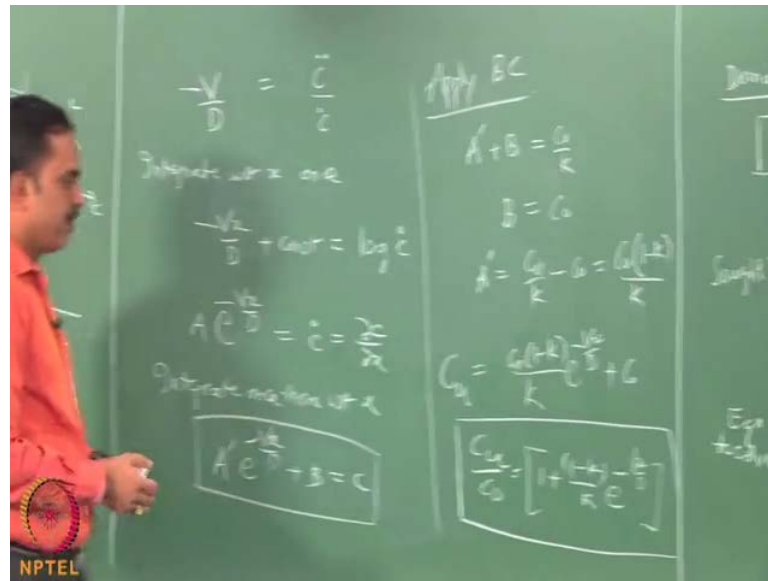 -V/D = c̈/ċ
Integrate wrt x once
-Vx/D + const = log ċ
A e^(-Vx/D) = ċ = ∂c/∂x
Integrate once more wrt x
A' e^(-Vx/D) + B = C
Apply BC
A' + B = C₀/K
B = C₀
A' = C₀/K - C₀ = C₀(1-K)/K
= C₀(1-K)/K e^(-Vx/D) + C₀
= [1 + (1-K)/K e^(-Vx/D)]
NPTEL